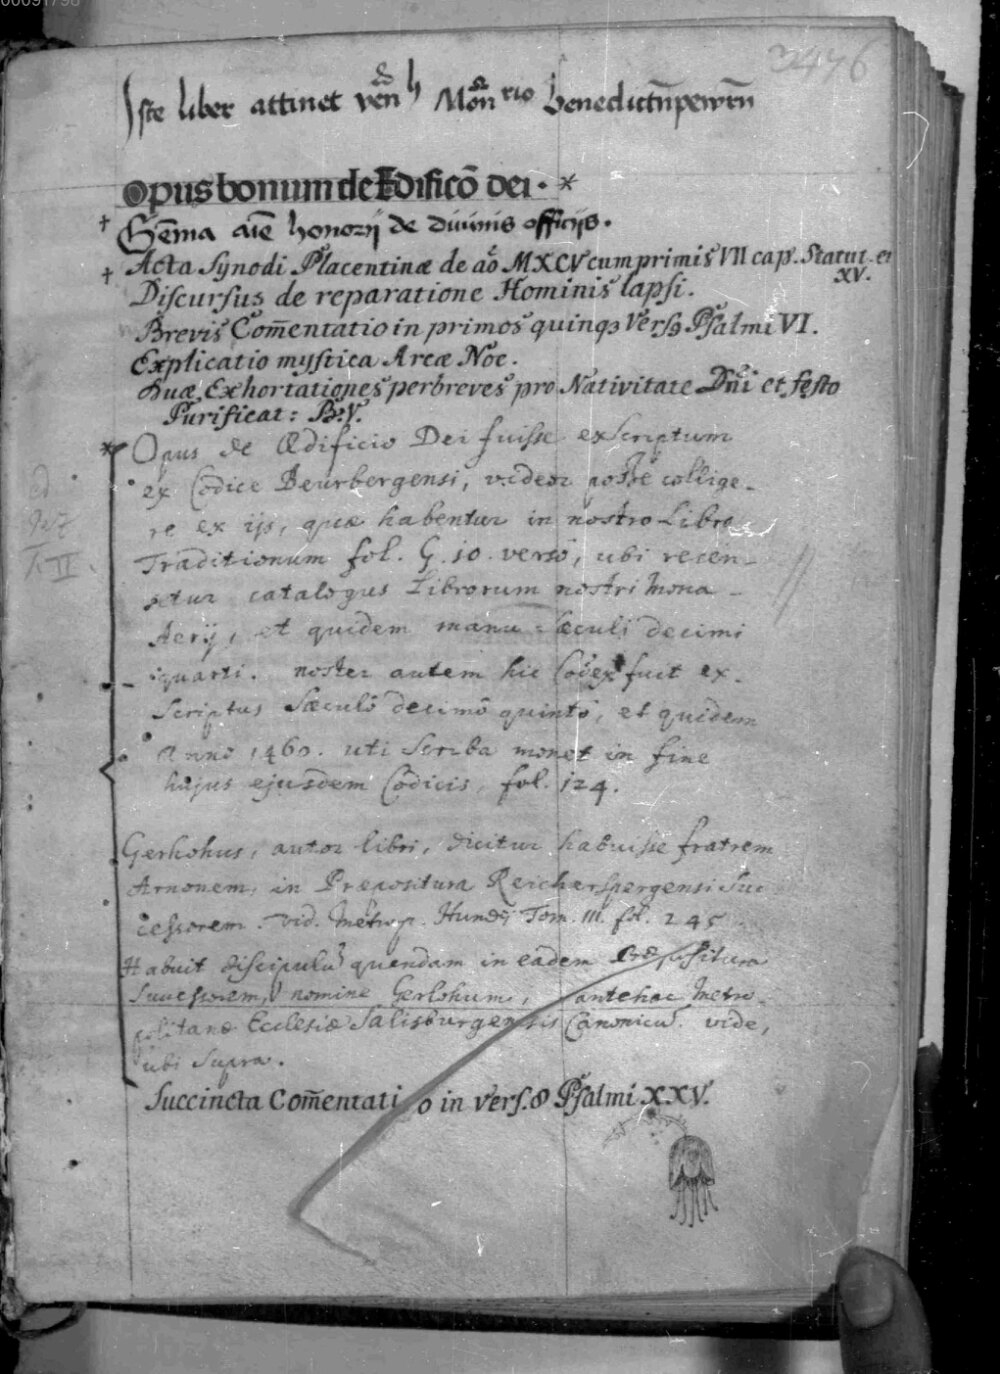 00091798
3476
Iste liber attinet ven Mon rio benedictnpewrn
Opus bonum de Edificō dei · *
† Gēma aīe honorij de diuinis officijs.
† Acta Synodi Placentinæ de aō MXCV cum primis VII cap. Statut. et
XV.
Discursus de reparatione Hominis lapsi.
Brevis Com̄entatio in primos quinqꝫ Vers9 Psalmi VI.
Explicatio mystica Arcæ Noe.
Duæ Exhortationes perbreves pro Nativitate Dni et festo
Purificat: B. V.
* Opus de Ædificio Dei fuisse exscriptum
ex Codice Beurbergensi, videor posse collige-
re ex ijs, quæ habentur in nostro Libro
Traditionum fol. G. 10. verso, ubi recen-
setur catalogus Librorum nostri Mona-
sterij, et quidem manu Sæculi decimi
quarti. noster autem hic Codex fuit ex-
scriptus Sæculo decimo quinto, et quidem
anno 1460. uti Scriba monet in fine
hujus ejusdem Codicis, fol. 124.
Gerhohus, autor libri, dicitur habuisse fratrem
Arnonem, in Præpositura Reicherspergensi suc
cessorem. vid. Metrop. Hundij Tom. III. fol. 245
Habuit discipulū quendam in eadem Præpositura
Successorem, nomine Gerlohum, antehac Metro-
politanæ Ecclesiæ Salisburgensis Canonicū. vide,
ubi supra.
Succincta Com̄entatio in vers. 8 Psalmi XXV.